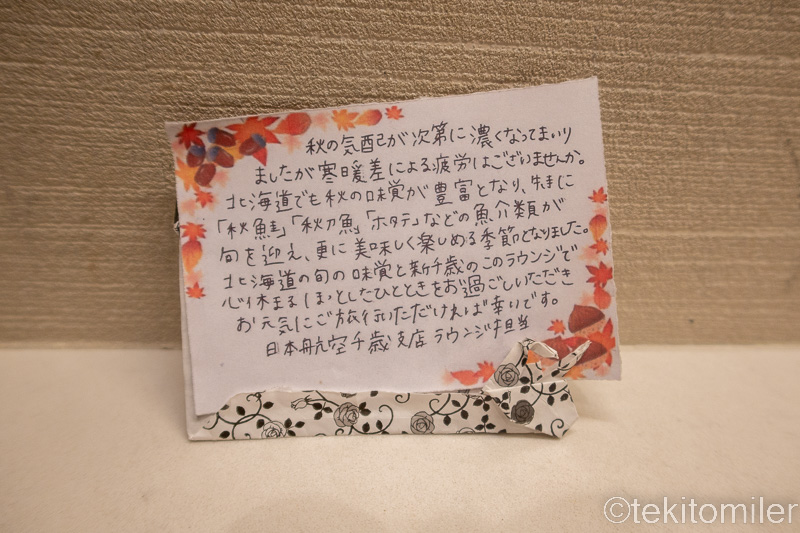 秋の気配が次第に濃くなってまいり
ましたが寒暖差による疲労はございませんか。
北海道でも秋の味覚が豊富となり、特に
「秋鮭」「秋刀魚」「ホタテ」などの魚介類が
旬を迎え、更に美味しく楽しめる季節となりました。
北海道の旬の味覚と新千歳のこのラウンジで
心休まるほっとしたひとときをお過ごしいただき
お元気にご旅行いただければ幸いです。
日本航空千歳支店 ラウンジ担当
©tekitomiler